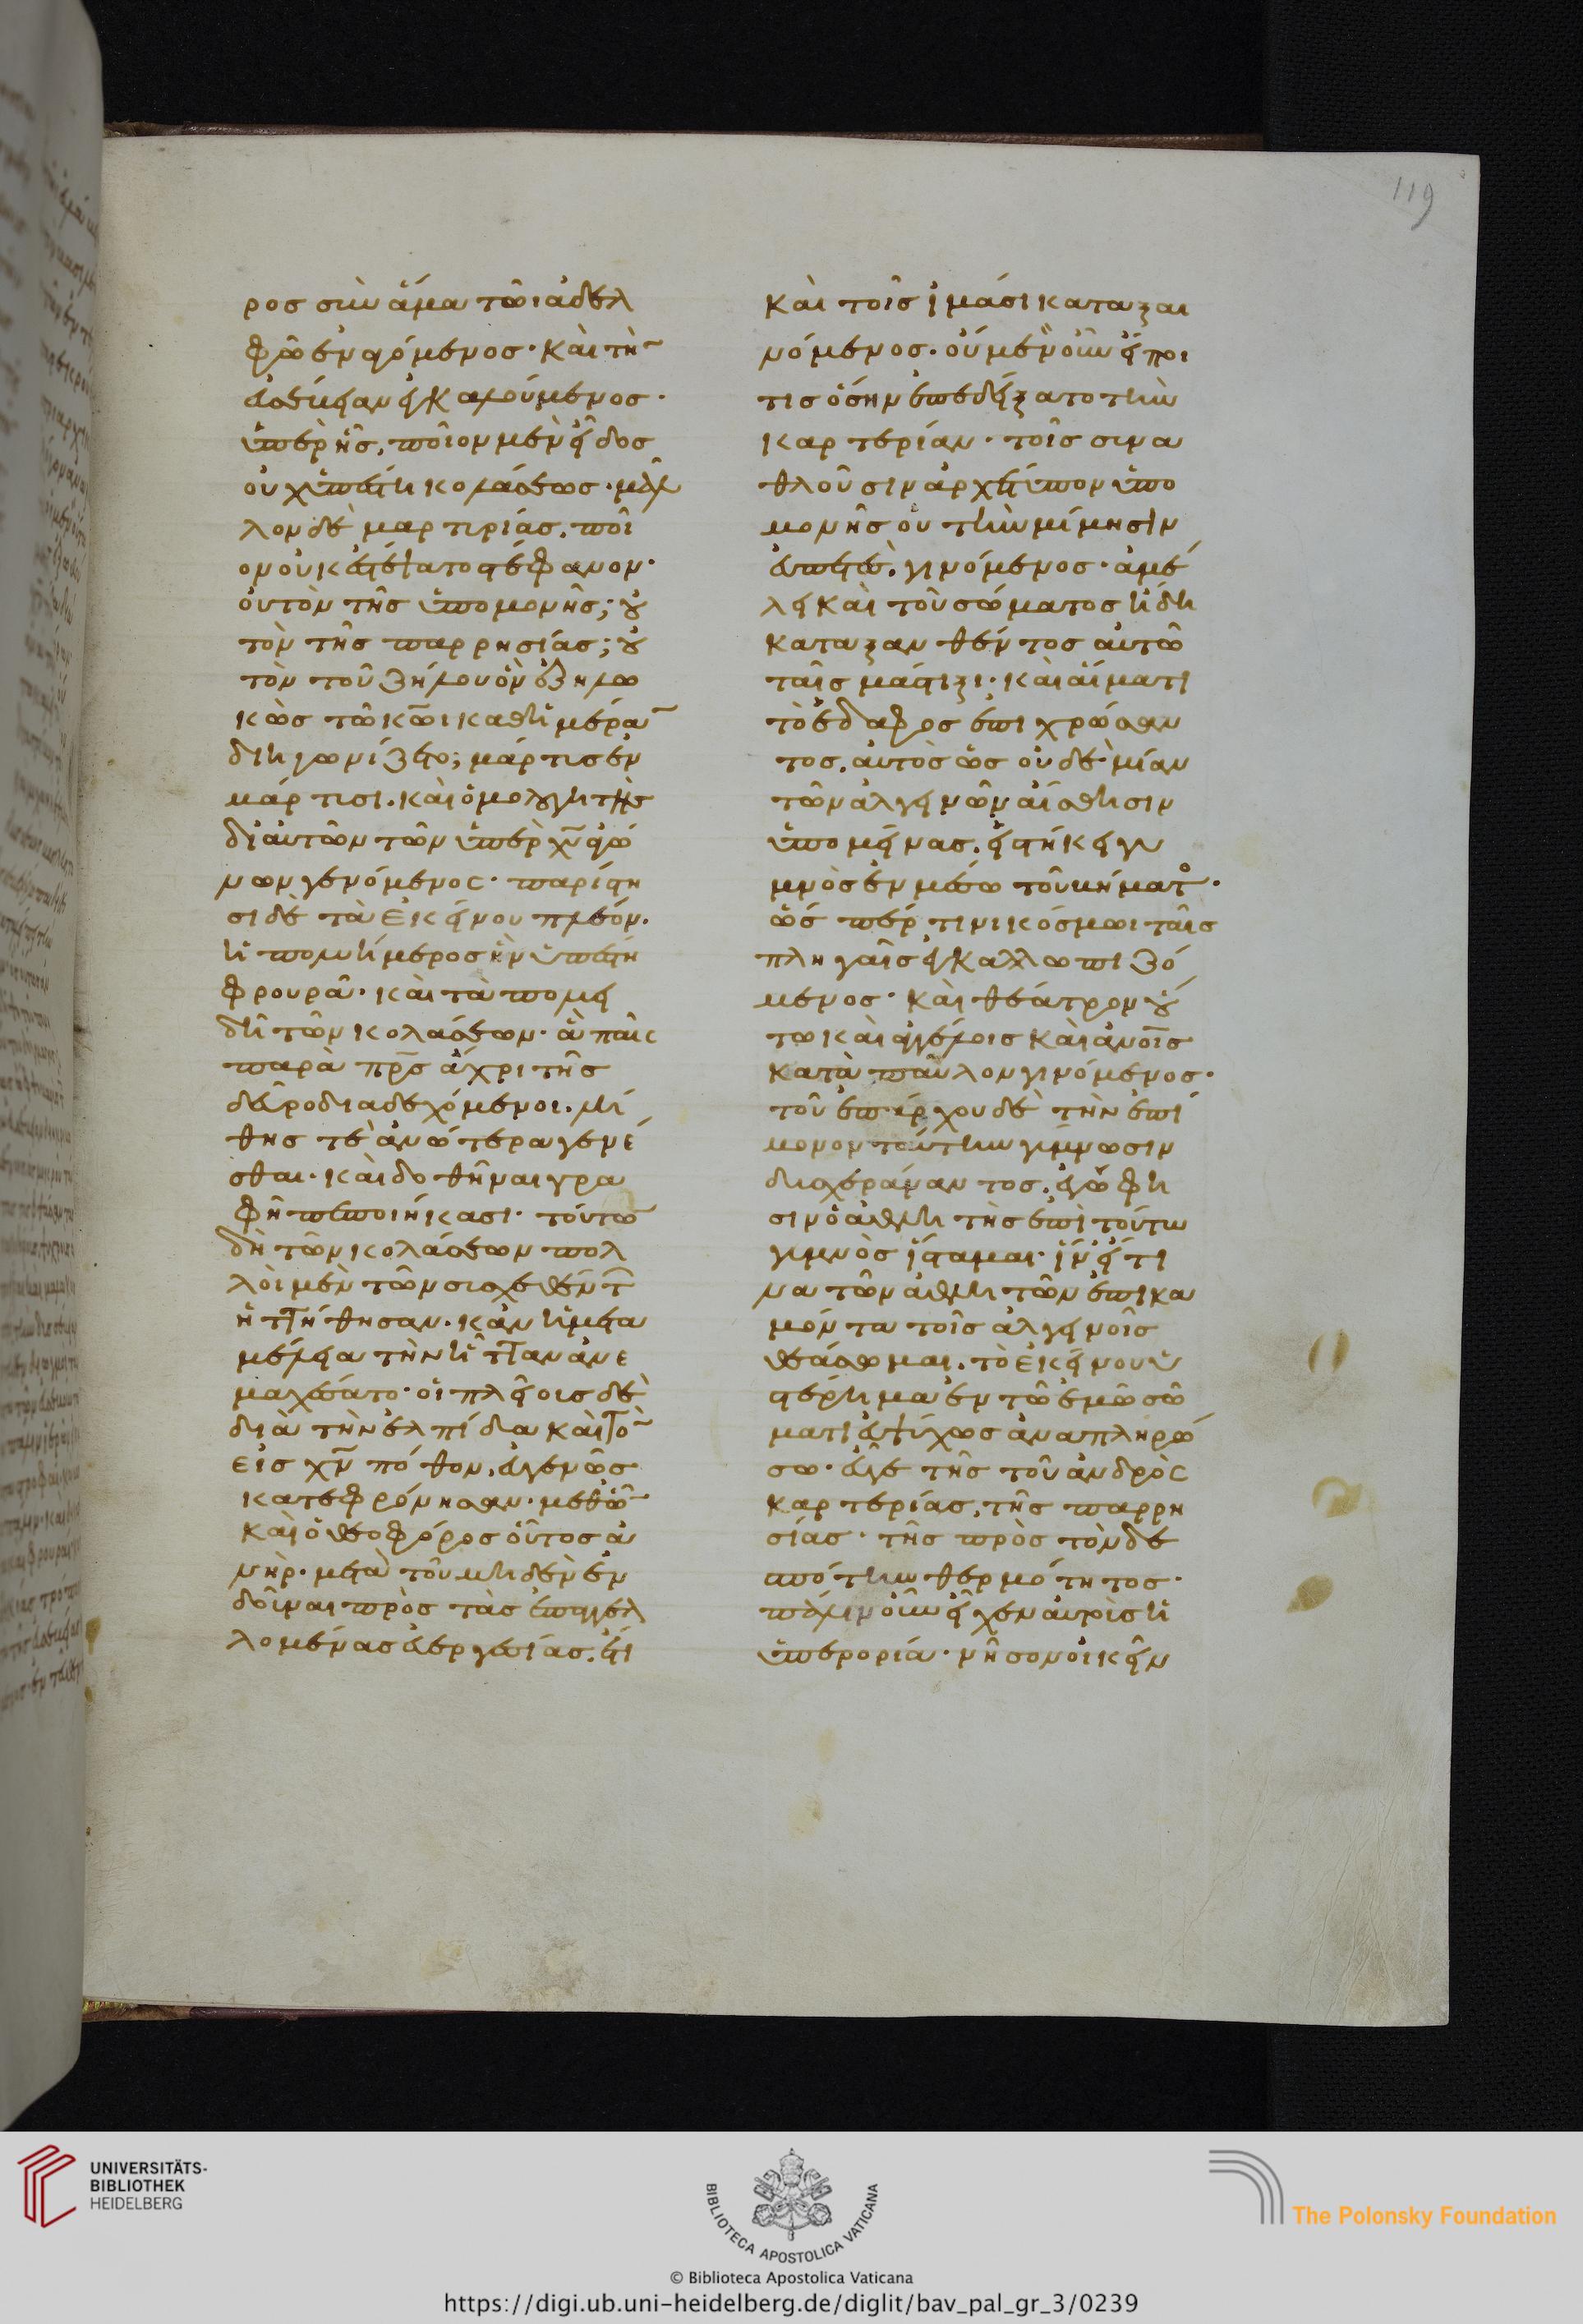 119
ρος σὺν ἅμα τῶι ἀδελ
φῶ ἐναγόμενος· καὶ τὴν
εὐσέβειαν ἐγκαλούμενος·
ὑπὲρ ἧς, ποῖον μὲν εἶδος
οὐχ ὑπέστη κολάσεως· μᾶλ
λον δὲ μαρτυρίας, ποῖ
ον οὐκ ἐστέψατο στέφανον·
οὐ τὸν τῆς ὑπομονῆς; οὐ
τὸν τῆς παρρησίας; οὐ
τὸν τοῦ ζήλου ὃν ἐζηλω
κὼς τῶ κω̅ι καθημέραν
διηγωνίζετο; μάρτυς ἐν
μάρτυσι. καὶ ὁμολογητὴς
δι αὐτῶν τῶν ὑπὲρ χυ̅ ἀγώ
νων γενόμενος· παρίστη
σι δὲ τὰ ἐκείνου πλέον.
ἡ πολυήμερος ἐν ὑπάτη
φρουρᾶ· καὶ τὰ πολυει
δῆ τῶν κολάσεων· ἃ παῖς
παρὰ πρ̅ς ἄχρι τῆς
δεῦρο διαδεχόμενοι. λή
θης τὲ ἀνώτερα γενέ
σθαι· καὶ δοθῆναι γρα
φῆ πεποιήκασι· τούτων
δὴ τῶν κολάσεων πολ
λοὶ μὲν τῶν συσχεθέντ
ἡττήθησαν. κἂν ἡ μετα
μέλεια τὴν ἧτταν ἀνε
μαχέσατο· οἱ πλείους δὲ
διὰ τὴν ἐλπίδα καὶ τὸν
εἰς χν̅ πόθον, εὐγενῶς
κατεφρόνησαν· μεθ ὧν
καὶ ὁ θεοφόρος οὗτος ἀ
νὴρ. μετὰ τοῦ μηδὲν ἐν
δοῦναι πρὸς τὰς ἐπαγγελ
λομένας εὐεργεσίας. ἔτι
καὶ τοῖς ἱμάσι καταξαι
νόμενος. οὐ μὲν οὖν εἴποι
τις ὅσην ἐπεδείξατο τὴν
καρτερίαν· τοῖς συνα
θλοῦσιν ἀρχέτυπον ὑπο
μονῆς οὐ τὴν μίμησιν
εὐπετὲς, γινόμενος· ἀμέ
λει καὶ τοῦ σώματος ἤδη
καταξανθέντος αὐτῶ
ταῖς μάστιξι· καὶ αἵματι
τὸ ἔδαφος ἐπιχρώσαν
τος, αὐτὸς ὡς οὐδὲ μίαν
τῶν ἀλγεινῶν αἴσθησιν
ὑπομείνας, εἱστήκει γυ
μνὸς ἐν μέσω τοῦ βήματο·
ὥσπερ τινὶ κόσμωι ταῖς
πληγαῖς ἐγκαλλωπιζό
μενος· καὶ θέατρον οὕ
τω καὶ ἀγγέλοις καὶ ἀνοῖς
κατὰ παῦλον γινόμενος·
τοῦ ἐπάρχου δὲ τὴν ἐπί
μονον ταύτην γύμνωσιν
δυσχεράναντος, ἐγὼ φη
σιν ὁ ἀθλητὴς ἐπὶ τούτω
γυμνὸς ἵσταμαι· ἵν εἴ τι
να τῶν ἀθλητῶν ἐπικα
μόντα τοῖς ἀλγεινοῖς
θεάσωμαι, τὸ ἐκείνου ὑ
στέρημα ἐν τῶ ἐμῶ σώ
ματι εὐψύχως ἀναπληρώ
σω· εὖγε τῆς τοῦ ἀνδρὸς
καρτερίας, τῆς παρρη
σίας· τῆς πρὸς τὸν δε
σπότην θερμότητος·
πάλιν οὖν εἶχεν αὐτοὺς ἡ
ὑπερορία· νῆσον οἰκεῖν
UNIVERSITÄTS-
BIBLIOTHEK
HEIDELBERG
BIBLIOTECA APOSTOLICA VATICANA
The Polonsky Foundation
© Biblioteca Apostolica Vaticana
https://digi.ub.uni-heidelberg.de/diglit/bav_pal_gr_3/0239